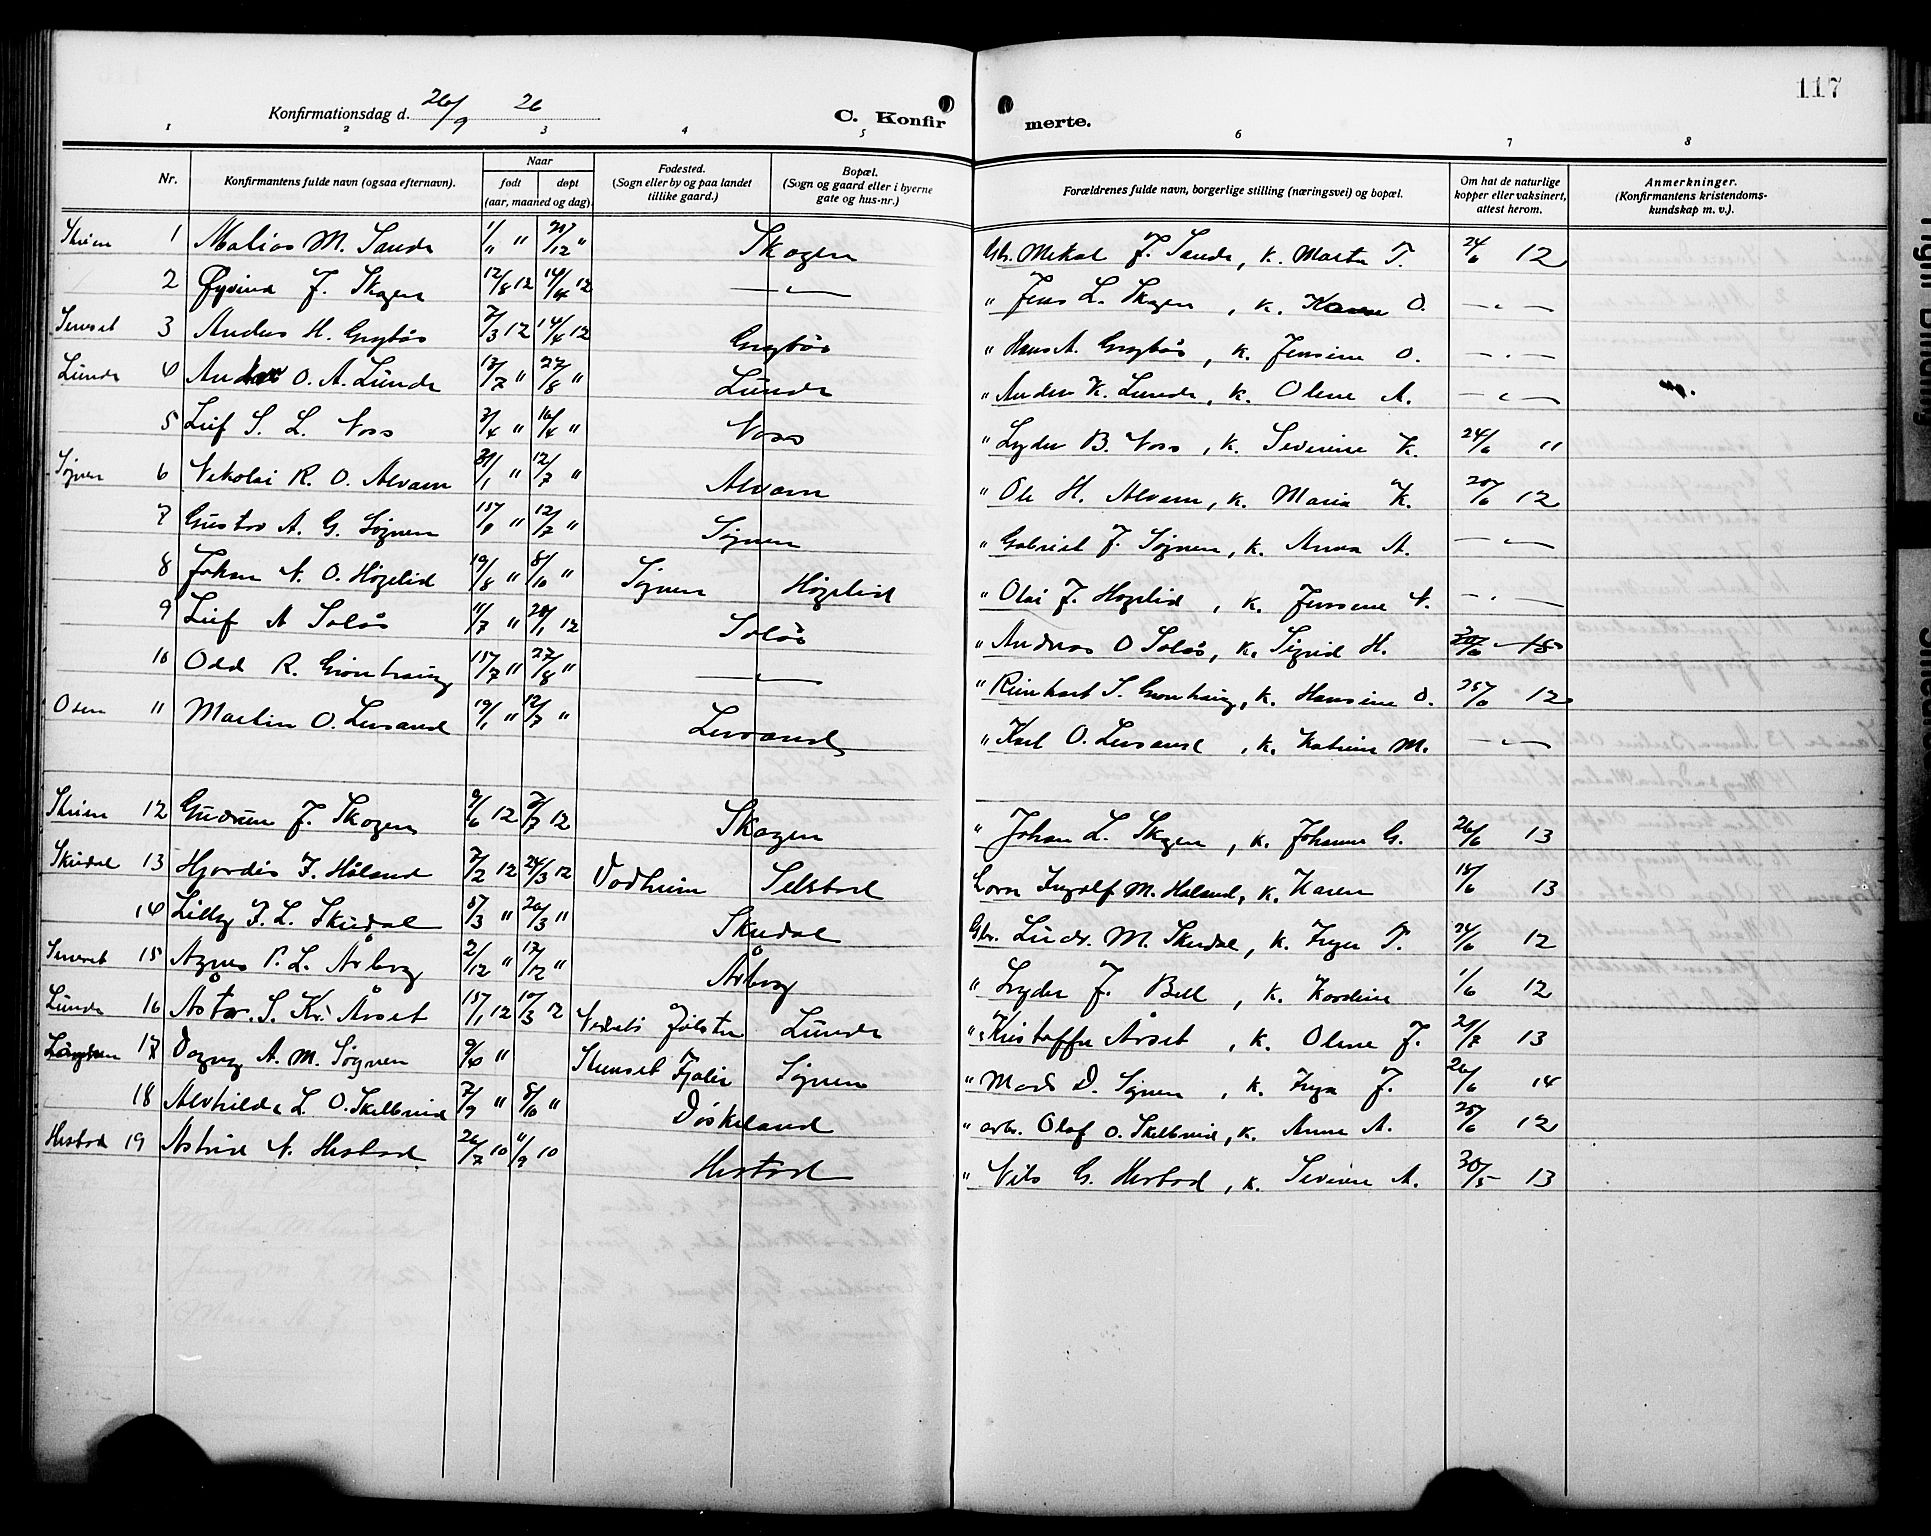 117
Konfirmationsdag d. 26/9 26
C. Konfir merte.
1 2 3 4 5 6 7 8
Nr. Konfirmantens fulde navn (ogsaa efternavn). Naar født døpt (aar, maaned og dag) Fødested. (Sogn eller by og paa landet tillike gaard.) Bopæl. (Sogn og gaard eller i byerne gate og hus-nr.) Forældrenes fulde navn, borgerlige stilling (næringsvei) og bopæl. Om hat de naturlige kopper eller vaksinert, attest herom. Anmerkninger. (Konfirmantens kristendomskundskap m. v.).
1 Matias M. Sande 1/11 " /12 " Skogen Gbr. Mikal J. Sande, k. Marta T. 24/6 12
2 Øyvind J. Skogen 12/8 12 14/4 12 — " — " Jens L. Skogen, k. O. — " —
3 Anders H. Grytøs 7/3 12 14/4 12 Grytøs " Hans A. Grytøs, k. Jensine O. — " —
Lunde 4 O. A. Lunde 13/7 " 27/8 " Lunde " Anders K. Lunde, k. Oline A. — " —
5 Leif S. L. Voss 3/4 " 16/4 " Voss " Lyder B. Voss, k. Severine K. 24/6 11
Søgnen 6 Nikolai R. O. Alvarn /1 " 12/7 " Alvarn " Ole H. Alvarn, k. Maria K. 12
7 Gustav A. G. Søgnen " 12/7 " Søgnen " Gabriel J. Søgnen, k. Anna A. — " —
8 Johan N. O. Høgelid 19/8 " 8/10 " Søgnen Høgelid " Olai J. Høgelid, k. Jensine N. — " —
9 Leif A Soløs 11/7 " /1 12 Soløs " Andreas O Soløs, k. Sigrid H.
10 Odd R. Grønhaug 15/7 " 27/8 " — " — " Reinhart S. Grønhaug, k. Hansine O. 25/6 12
Osen 11 Martin O. Leirsand 19/1 " 12/7 " Leirsand " Karl O. Leirsand, k. Katrine M. — " —
12 Gudrun J. Skogen 9/6 12 7/7 12 Skogen " Johan L. Skogen, k. Johanne G. 26/6 13
Skudal 13 Hjordis I. Håland 7/2 12 24/3 12 Vadheim Selstad Ingolf M. Håland, k. Karen 18/6 13
14 Lilly I. L. Skudal 5/3 " 20/3 " Skudal Gbr. Ludv. M. Skudal, k. Inger T. 24/6 12
15 Agnes P. L. Årberg 2/12 " 17/12 " Årberg " Lyder J. Bell, k. Kardine 1/6 12
Lunde 16 Åsta. S. Kr. Årset 15/1 12 10/3 12 Jølster Lunde " Kristoffer Årset, k. Oline J. 29/7 13
17 Dagny A. M. Søgnen 9/10 " Fjaler Søgnen " Mads D. Søgnen, k. Inga J. 26/6 14
18 Alvhilda L. O. Skilbreid 7/9 " 8/10 " Døskeland " arb. Olaf O. Skilbreid, k. Anne A. 25/6 12
Hestad 19 Astrid N. Hestad 26/7 10 11/9 10 Hestad " Nils G. Hestad, k. Severine A. 30/5 13